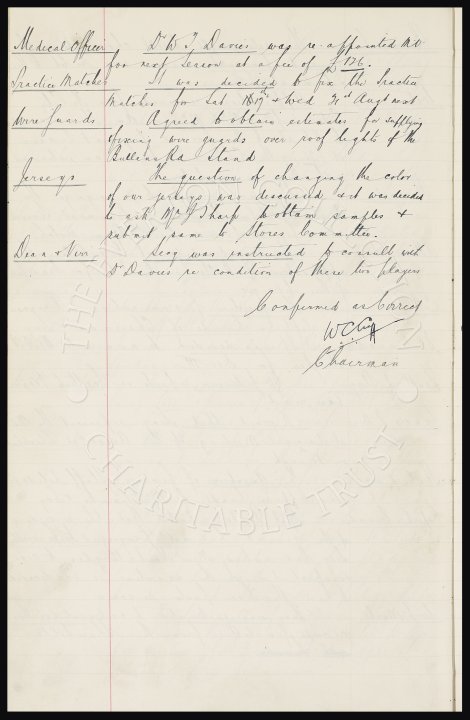 Medical Officer Dr W. J. Davies was re-appointed M.O.
for next Season at a fee of £126.
Practice Matches It was decided to fix the Practice
Matches for Sat & Wed 21st Augt next
Wire Guards Agreed to obtain estimates for supplying
& fixing wire guards over roof lights of the
Bullens Rd Stand
Jerseys The question of changing the color
of our jerseys was discussed & it was decided
to ask Mr Sharp to obtain samples &
submit same to Stores Committee.
Dean & Secy was instructed to consult with
Dr Davies re condition of these two players
Confirmed as Correct
Chairman
THE
CHARITABLE TRUST